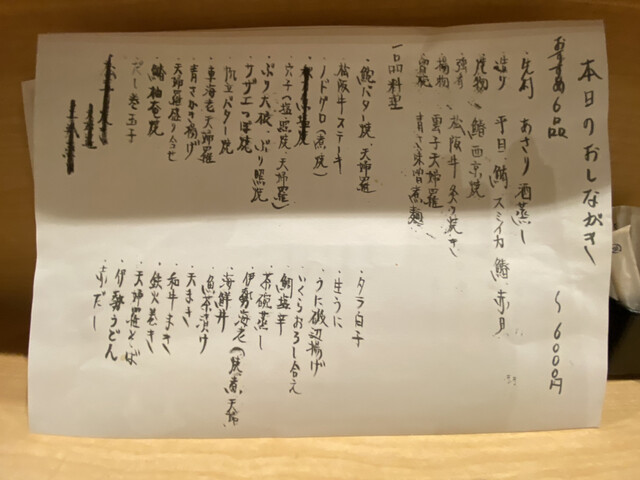 本日のおしながき 〜6000円
おすすめ6品
・先付 あさり酒蒸し
造り 平目、鯖、スミイカ、鰆、赤貝
焼物 鰆西京焼
強肴 松阪牛炙り焼き
揚物 雲子天婦羅
青さ味噌煮麺
一品料理
・鮑バター焼、天婦羅
・松阪牛ステーキ
・ノドグロ(煮、焼)
・穴子(塩焼、照焼、天婦羅)
・ぶり大根、ぶり照焼
・サザエつぼ焼
・帆立バター焼
・車海老天婦羅
・青さかき揚げ
・天婦羅盛り合せ
・鰆柚庵焼
・だし巻玉子
・タラ白子
・生うに
・うに磯辺揚げ
・いくらおろし合え
・鯛塩辛
・茶碗蒸し
・伊勢海老
・海鮮丼
・魚茶漬け
・天まき
・和牛まき
・鉄火巻き
・天婦羅そば
・伊勢うどん
・赤だし